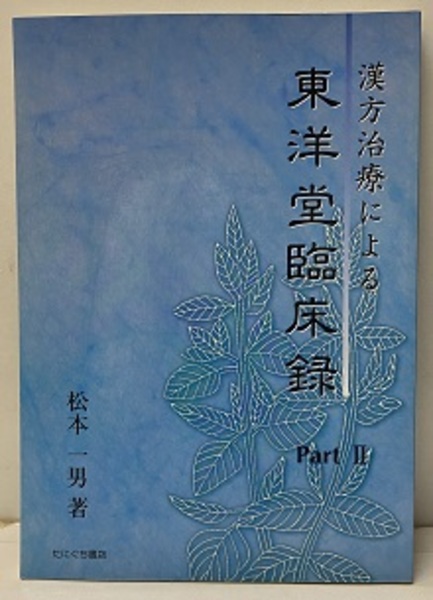 漢方治療による
東洋堂臨床録
Part Ⅱ
松本一男著
たにぐち書店